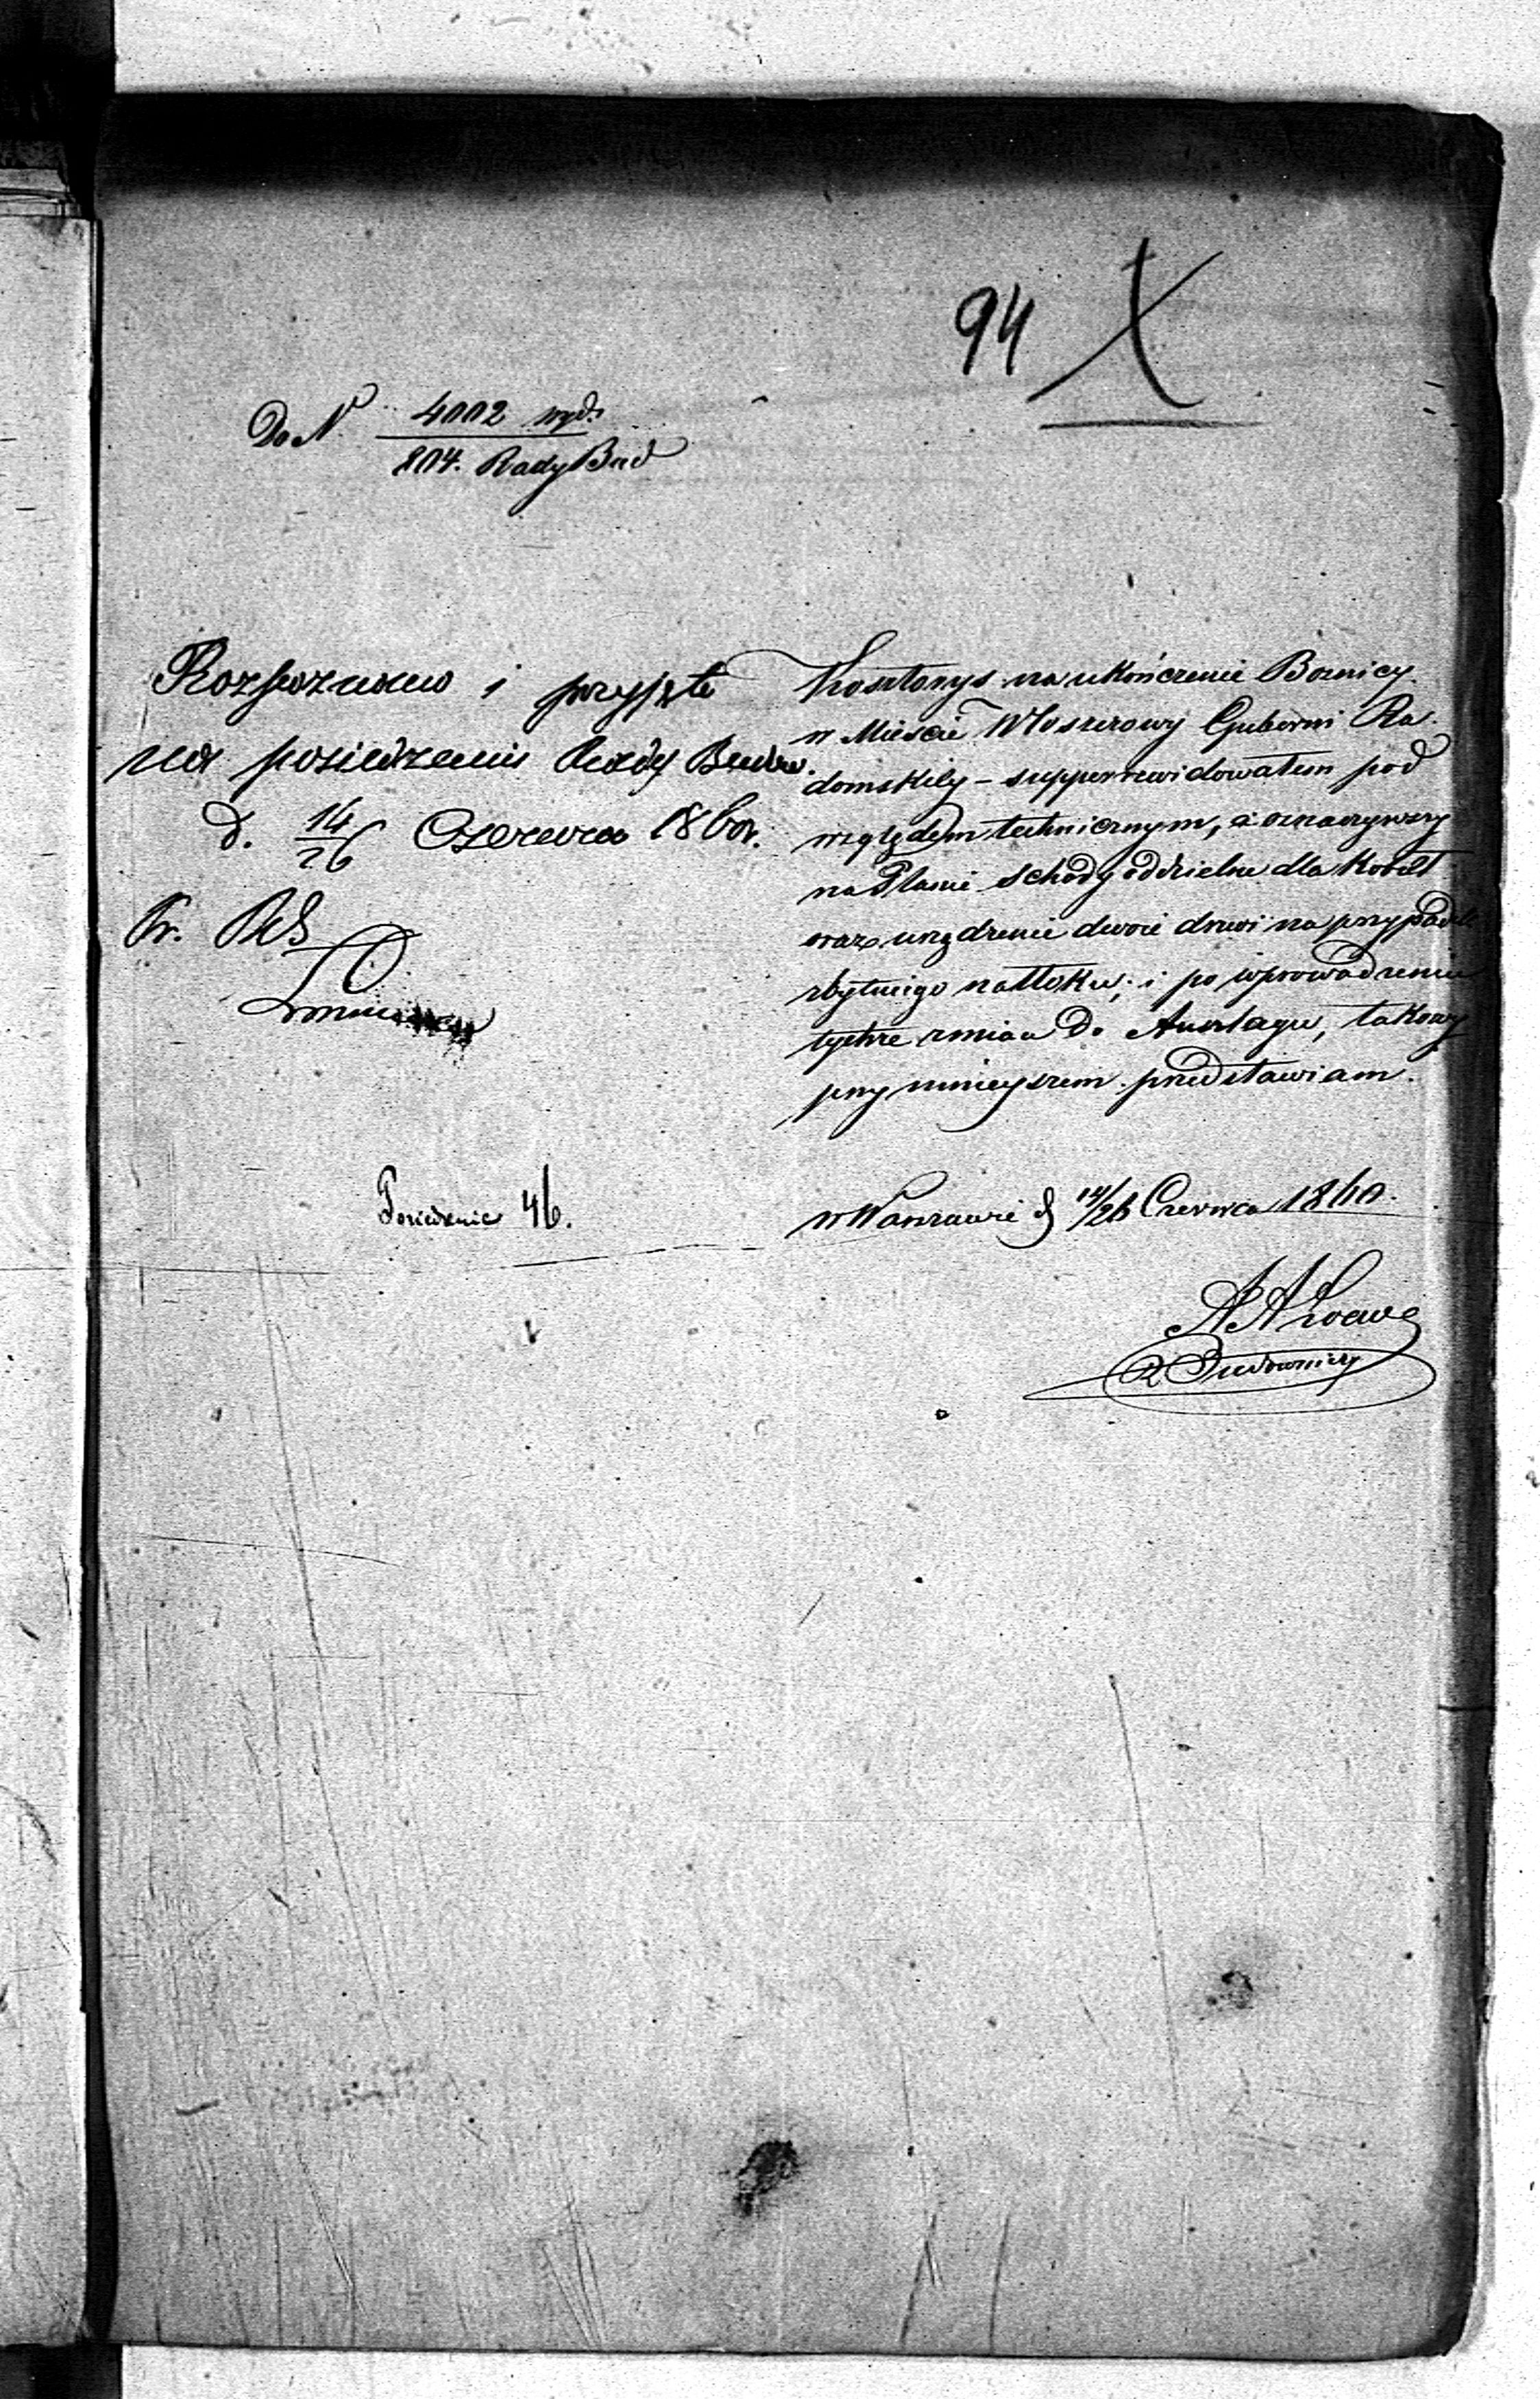 94
Do N. 4002 wyd.
804. Rady Bud
Rozpoznano i przyjęto
na posiedzeniu Rady Budow.
d. 14/26 Czerwca 1860 r.
Posiedzenie 46.
Kosztorys na ukończenie Bożnicy
w Mieście Włoszczowy Guberni Ra-
domskiey – supperrewidowałem pod
względem technicznym, a oznaczywszy
na Planie schody oddzielne dla kobiet
oraz urządzenie dwoie drzwi na przypadek
zbytniego natłoku; i po wprowadzeniu
tychże zmian do Anszlagu, takowy
przy ninieyszem przedstawiam.
w Warszawie d 14/26 Czerwca 1860.
AALoewe
R Budowniczy